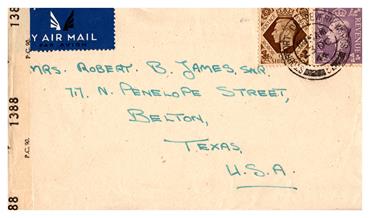 BY AIR MAIL
PAR AVION
P.C. 90.
1388
P.C. 90.
REVENUE
MRS. ROBERT B. JAMES, SNR.
717. N. PENELOPE STREET,
BELTON,
TEXAS,
U.S.A.